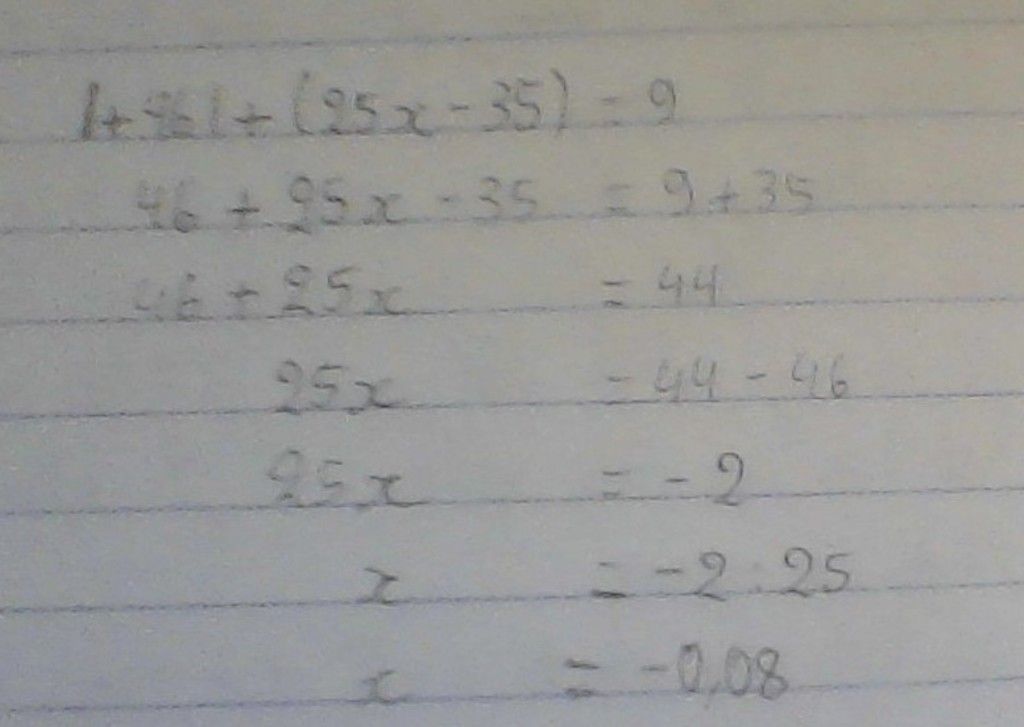 |+46|+(25x-35) = 9
46 + 25x - 35 = 9 + 35
46 + 25x = 44
25x = 44 - 46
25x = -2
x = -2 : 25
x = -0,08